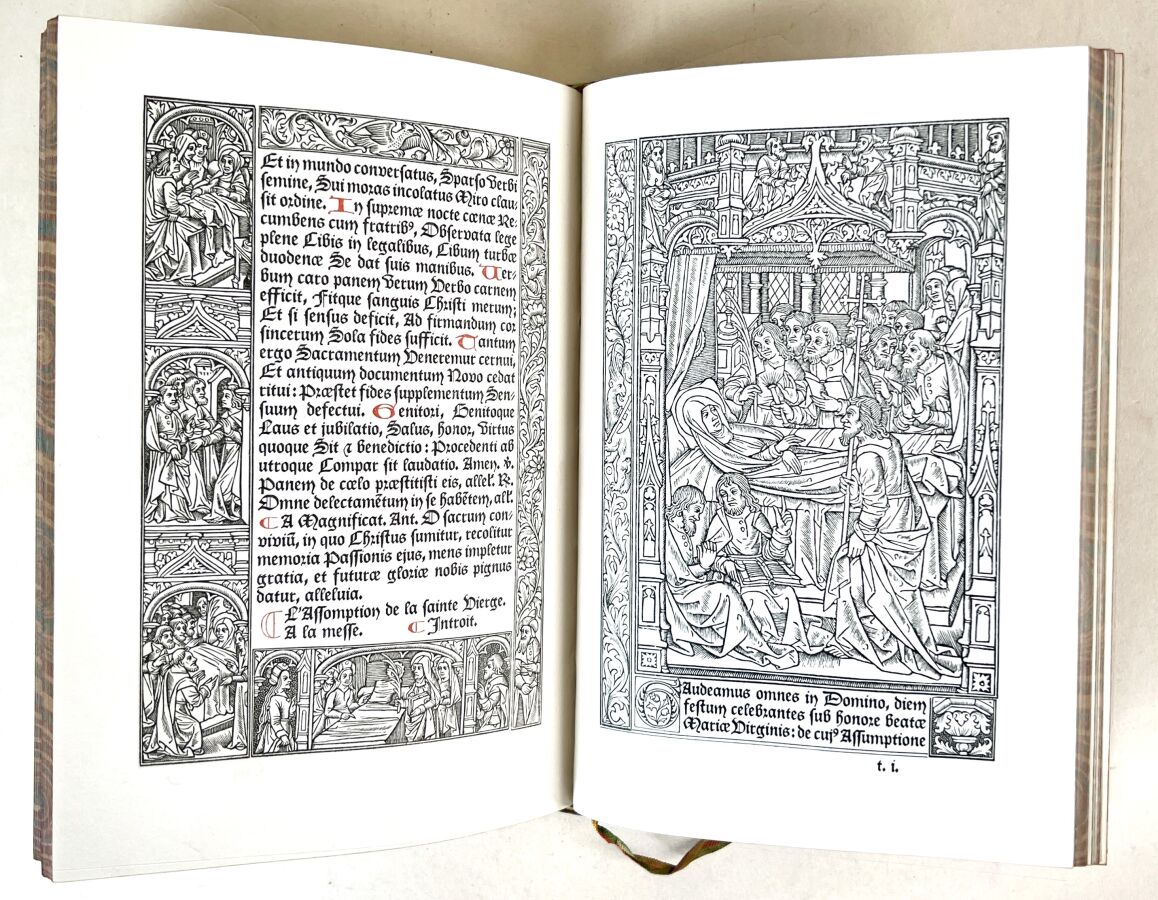 Et in mundo conversatus, Sparso verbi
semine, Sui moras incolatus Miro clau-
sit ordine. In supremæ nocte cœnæ Re-
cumbens cum fratribꝰ, Observata lege
plene Cibis in legalibus, Cibum turbæ
duodenæ Se dat suis manibus. Ver-
bum caro panem verum Verbo carnem
efficit, Fitque sanguis Christi merum;
Et si sensus deficit, Ad firmandum cor
sincerum Sola fides sufficit. Tantum
ergo Sacramentum Veneremur cernui,
Et antiquum documentum Novo cedat
ritui: Præstet fides supplementum Sen-
suum defectui. Genitori, Genitoque
Laus et jubilatio, Salus, honor, virtus
quoque Sit ⁊ benedictio: Procedenti ab
utroque Compar sit laudatio. Amen. ℣.
Panem de cœlo præstitisti eis, allel'. R.
Omne delectamētum in se habētem, all'.
A Magnificat. Ant. O sacrum con-
viviū, in quo Christus sumitur, recolitur
memoria Passionis ejus, mens impletur
gratia, et futuræ gloriæ nobis pignus
datur, alleluia.
L'Assomption de la sainte Vierge.
A la messe. Introit.
Gaudeamus omnes in Domino, diem
festum celebrantes sub honore beatæ
Mariæ Virginis: de cujꝰ Assumptione
t. i.